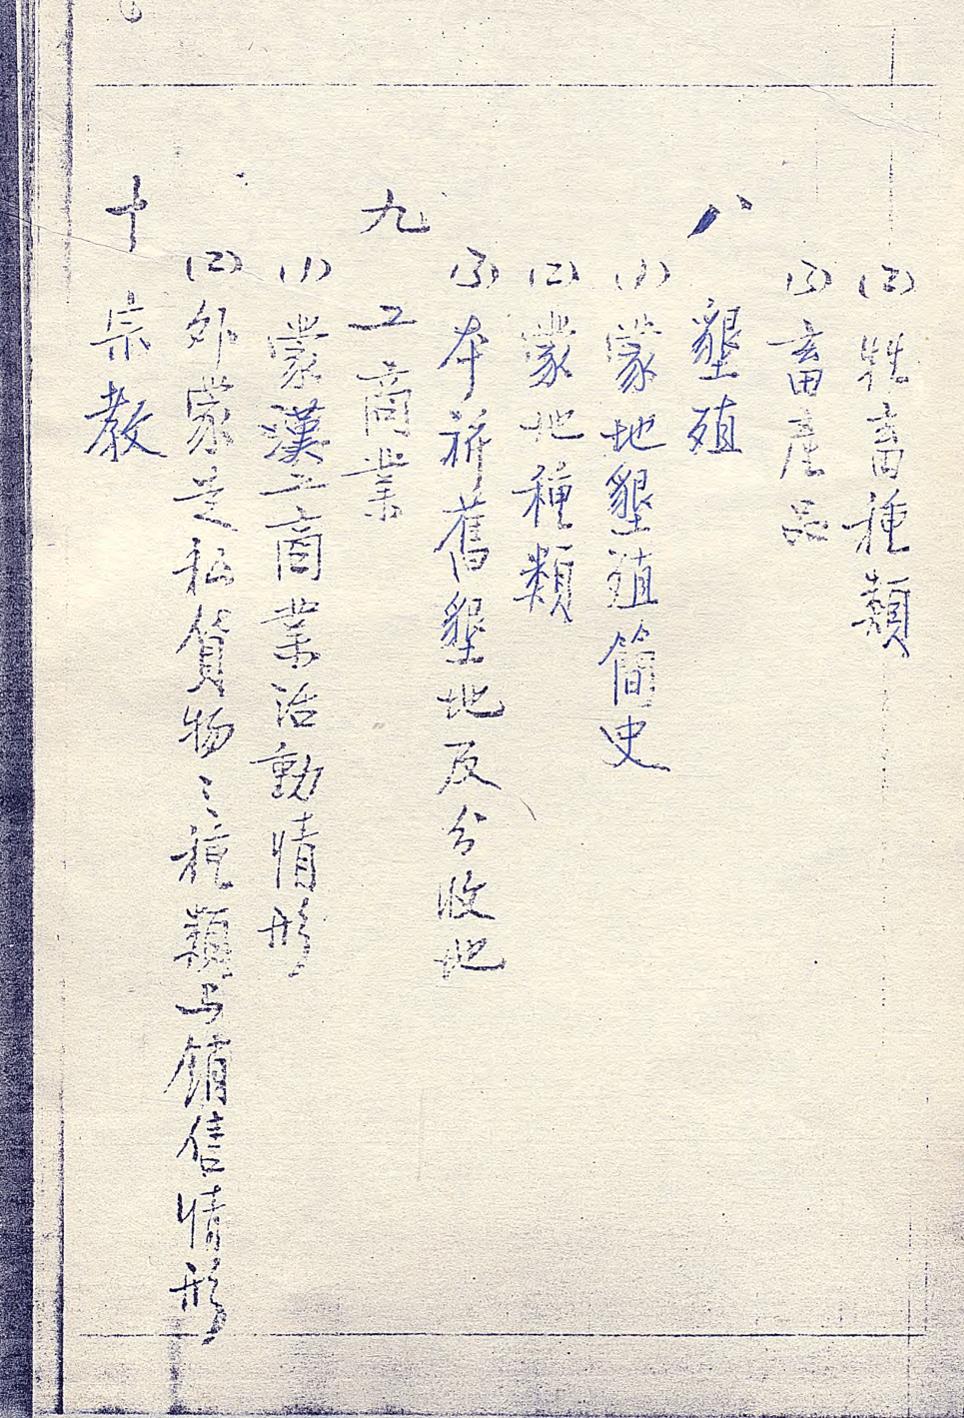 (2)牲畜種類
(3)畜產品
八 墾殖
(1)蒙地墾殖簡史
(2)蒙地種類
(3)本旂舊墾地及分收地
九 工商業
(1)蒙漢工商業活動情形
(2)外蒙走私貨物之種類与銷售情形
十 宗教